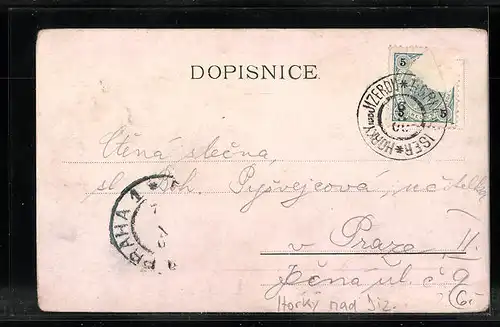 DOPISNICE.
5
5
HORKY NAD JIZEROU * HORKY ISER *
Ctěná slečna,
sl. Boh. Pyšvejcová, učitelka
v Praze II.
Ječná ul. č 9
PRAHA 1
Horky nad Jiz.